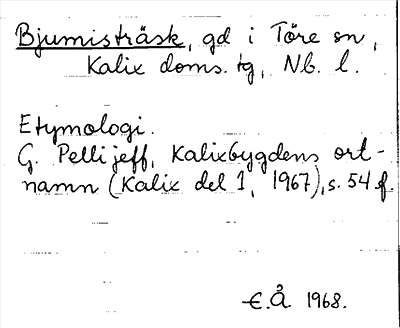 Bjumisträsk, gd i Töre sn,
Kalix doms. tg, Nb. l.
Etymologi.
G. Pellijeff, Kalixbygdens ort-
namn (Kalix del 1, 1967), s. 54 f.
E.Å 1968.